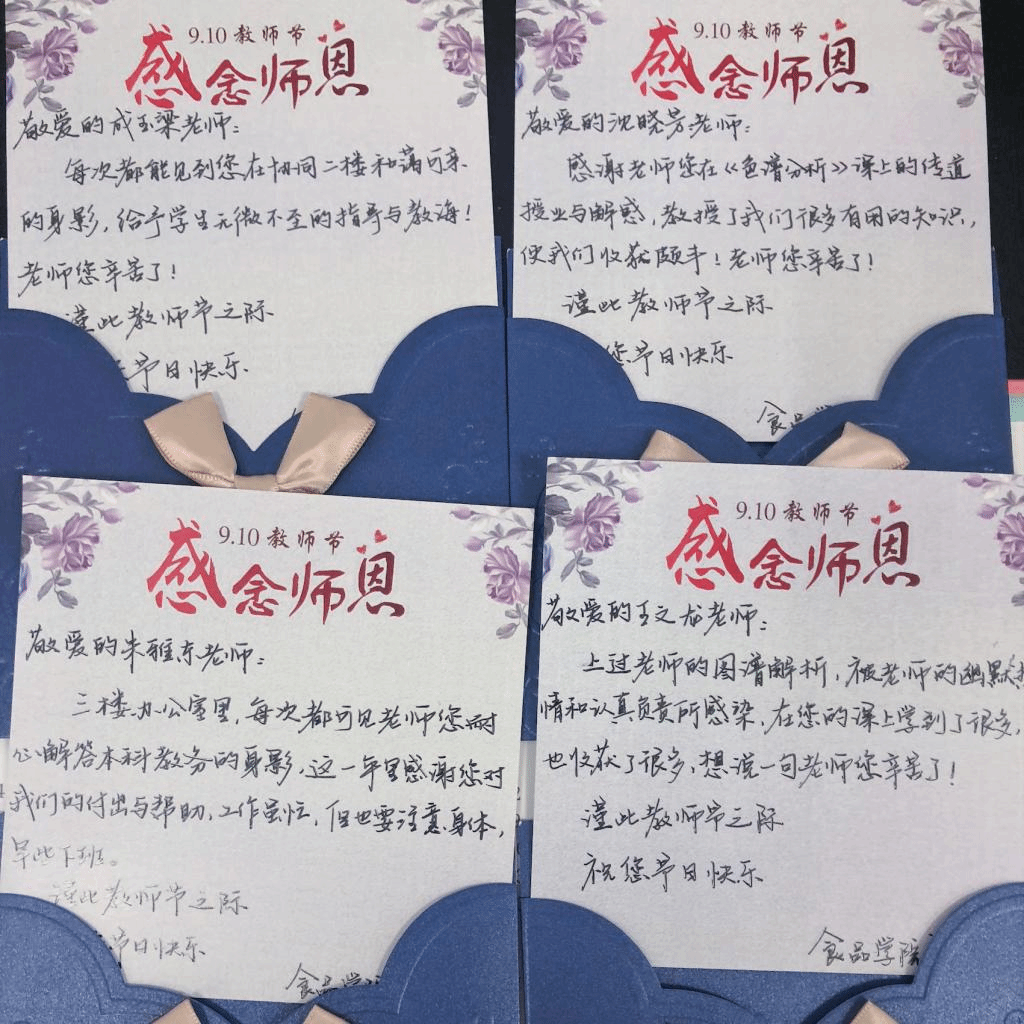 9.10教师节
感念师恩
敬爱的成玉梁老师:
每次都能见到您在协同二楼和蔼可亲
的身影,给予学生无微不至的指导与教诲!
老师您辛苦了!
谨此教师节之际
节日快乐
9.10教师节
感念师恩
敬爱的沈晓芳老师:
感谢老师您在《色谱分析》课上的传道
授业与解惑,教授了我们很多有用的知识,
使我们收获颇丰!老师您辛苦了!
谨此教师节之际
您节日快乐
食品学
9.10教师节
感念师恩
敬爱的朱雅东老师:
三楼办公室里,每次都可见老师您耐
心解答本科教务的身影,这一年里感谢您对
我们的付出与帮助,工作虽忙,但也要注意身体,
早些下班。
谨此教师节之际
节日快乐
食品学
9.10教师节
感念师恩
敬爱的王文龙老师:
上过老师的图谱解析,被老师的幽默热
情和认真负责所感染,在您的课上学到了很多,
也收获了很多,想说一句老师您辛苦了!
谨此教师节之际
祝您节日快乐
食品学院